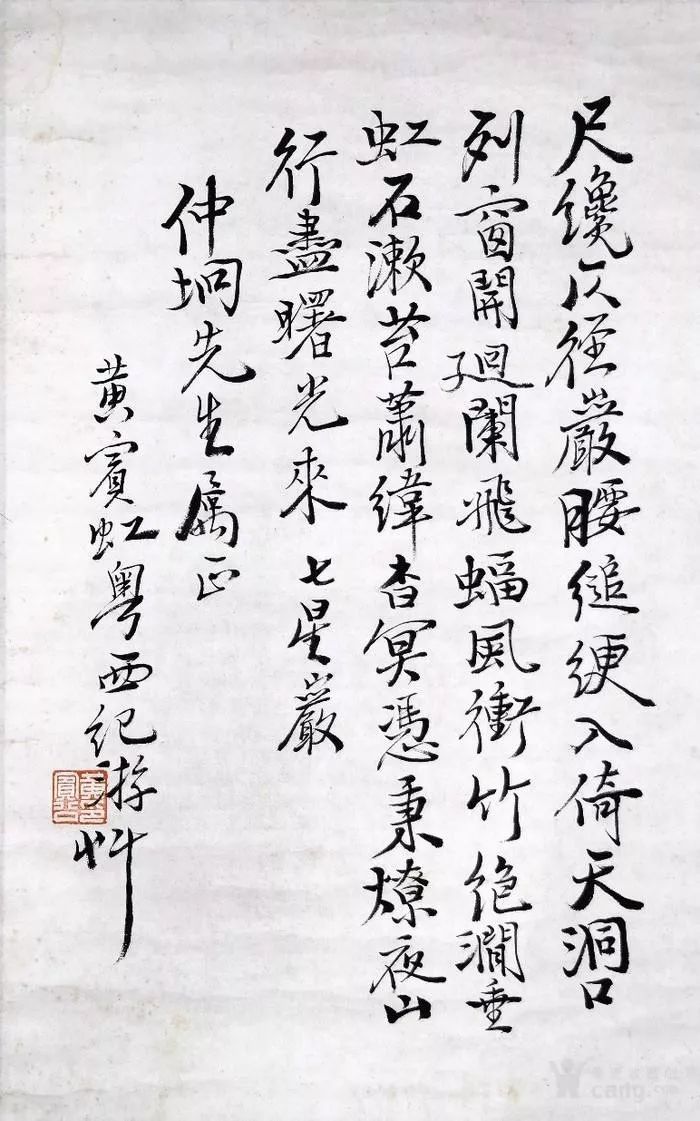 尺纔仄徑巖腰縋綆入倚天洞口
列窗開迴闌飛蝠風衝竹絶澗垂
虹石漱苔蕭緯杳冥憑秉燎夜山
行盡曙光來 七星巖
仲坰先生屬正
黃賓虹粵西紀游艸
cang.com